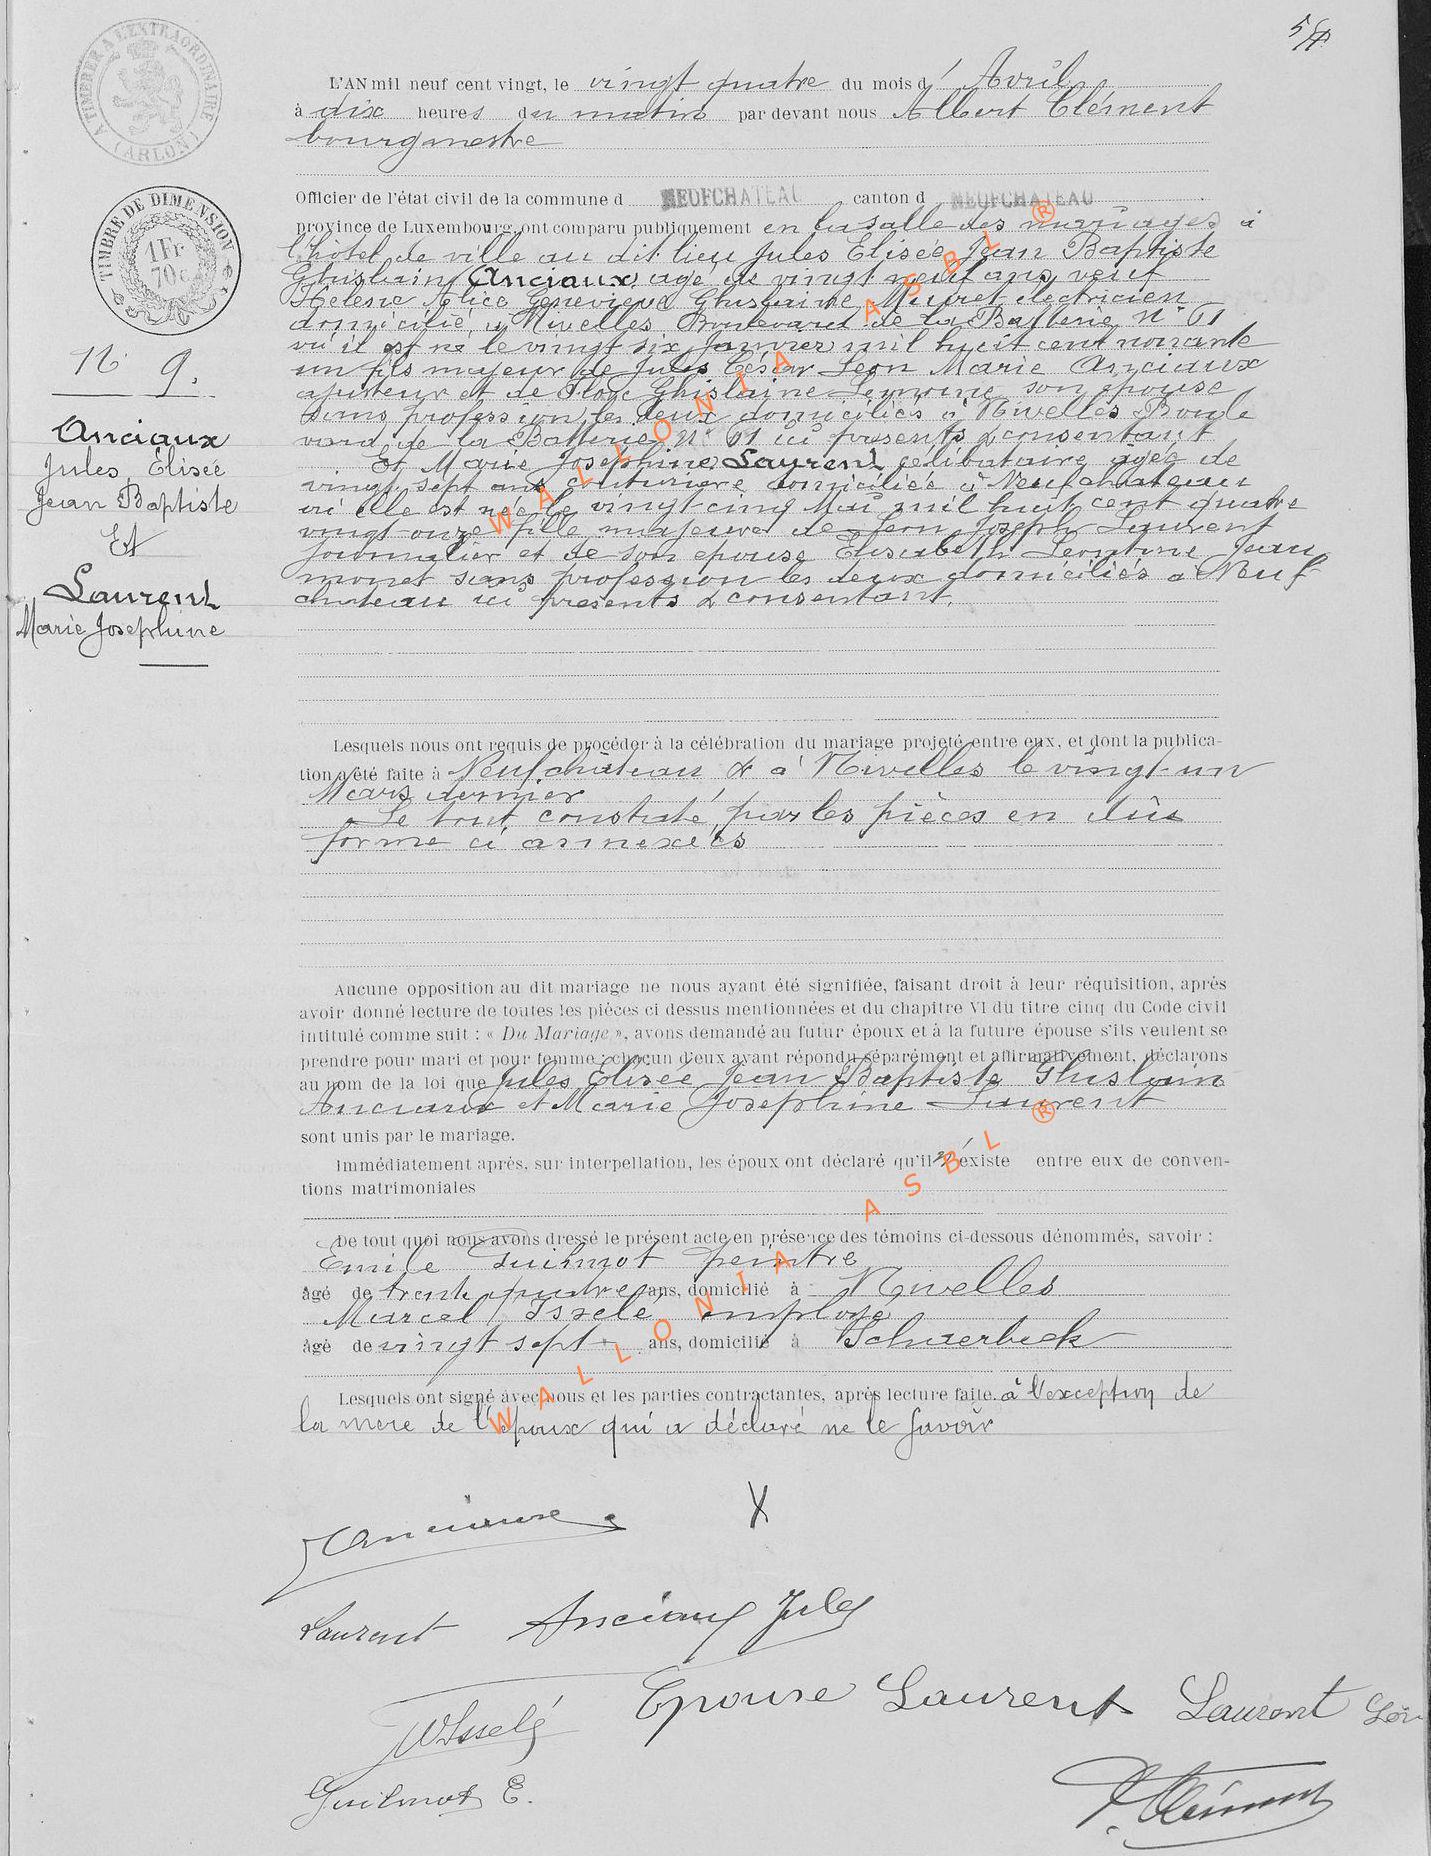 5
A TIMBRER A L'EXTRAORDINAIRE
(ARLON)
TIMBRE DE DIMENSION
1 Fr
70c
N° 9.
Anciaux
Jules Elisée
Jean Baptiste
Et
Laurent
Marie Josephine
L'AN mil neuf cent vingt, le vingt quatre du mois d' Avril
à dix heures du matin par devant nous Albert Clément
bourgmestre
Officier de l'état civil de la commune d NEUFCHATEAU canton d NEUFCHATEAU
province de Luxembourg, ont comparu publiquement en la salle des mariages à
l'hôtel de ville au dit lieu Jules Elisée Jean Baptiste
Ghislain Anciaux agé de vingt neuf ans, veuf
Helene Alice Genevieve Ghislaine électricien
domicilié à Nivelles Boulevard de la Batterie N° 61
où il est né le vingt six Janvier mil huit cent nonante
un fils majeur de Jules César Leon Marie Anciaux
ajusteur et de Flore Ghislaine Lemoine son epouse
sans profession, les deux domiciliés à Nivelles Boule
vard de la Batterie N° 61 ici présents & consentant
Et Marie Josephine Laurent célibataire agée de
vingt sept ans couturière domiciliée à Neufchateau
où elle est née le vingt cinq Mai mil huit cent quatre
vingt onze fille majeure de Leon Joseph Laurent
journalier et de son epouse Elisabeth Leontine Jean
monet sans profession les deux domiciliés à Neuf
chateau ici présents & consentant.
Lesquels nous ont requis de procéder à la célébration du mariage projeté entre eux, et dont la publica-
tion a été faite à Neufchâteau & à Nivelles le vingt-un
Mars dernier
Le tout constaté par les pièces en dûe
forme ci annexées
Aucune opposition au dit mariage ne nous ayant été signifiée, faisant droit à leur réquisition, après
avoir donné lecture de toutes les pièces ci dessus mentionnées et du chapitre VI du titre cinq du Code civil
intitulé comme suit : « Du Mariage », avons demandé au futur époux et à la future épouse s'ils veulent se
prendre pour mari et pour femme, chacun d'eux ayant répondu séparément et affirmativement, déclarons
au nom de la loi que Jules Elisée Jean Baptiste Ghislain
Anciaux et Marie Josephine Laurent
sont unis par le mariage.
Immédiatement après, sur interpellation, les époux ont déclaré qu'il n'existe entre eux de conven-
tions matrimoniales
De tout quoi nous avons dressé le présent acte en présence des témoins ci-dessous dénommés, savoir :
Emile Guilmot peintre
âgé de trente quatre ans, domicilié à Nivelles
Marcel Isselé employé
âgé de vingt sept ans, domicilié à Schaerbeek
Lesquels ont signé avec nous et les parties contractantes, après lecture faite. à l'exception de
la mère de l'époux qui a déclaré ne le savoir
JAnciaux X
Laurent Anciaux Jules
Epouse Laurent Laurent Léon
Isselé
Guilmot E.
A. Clément
WALLONIA ASBL ®
WALLONIA ASBL ®